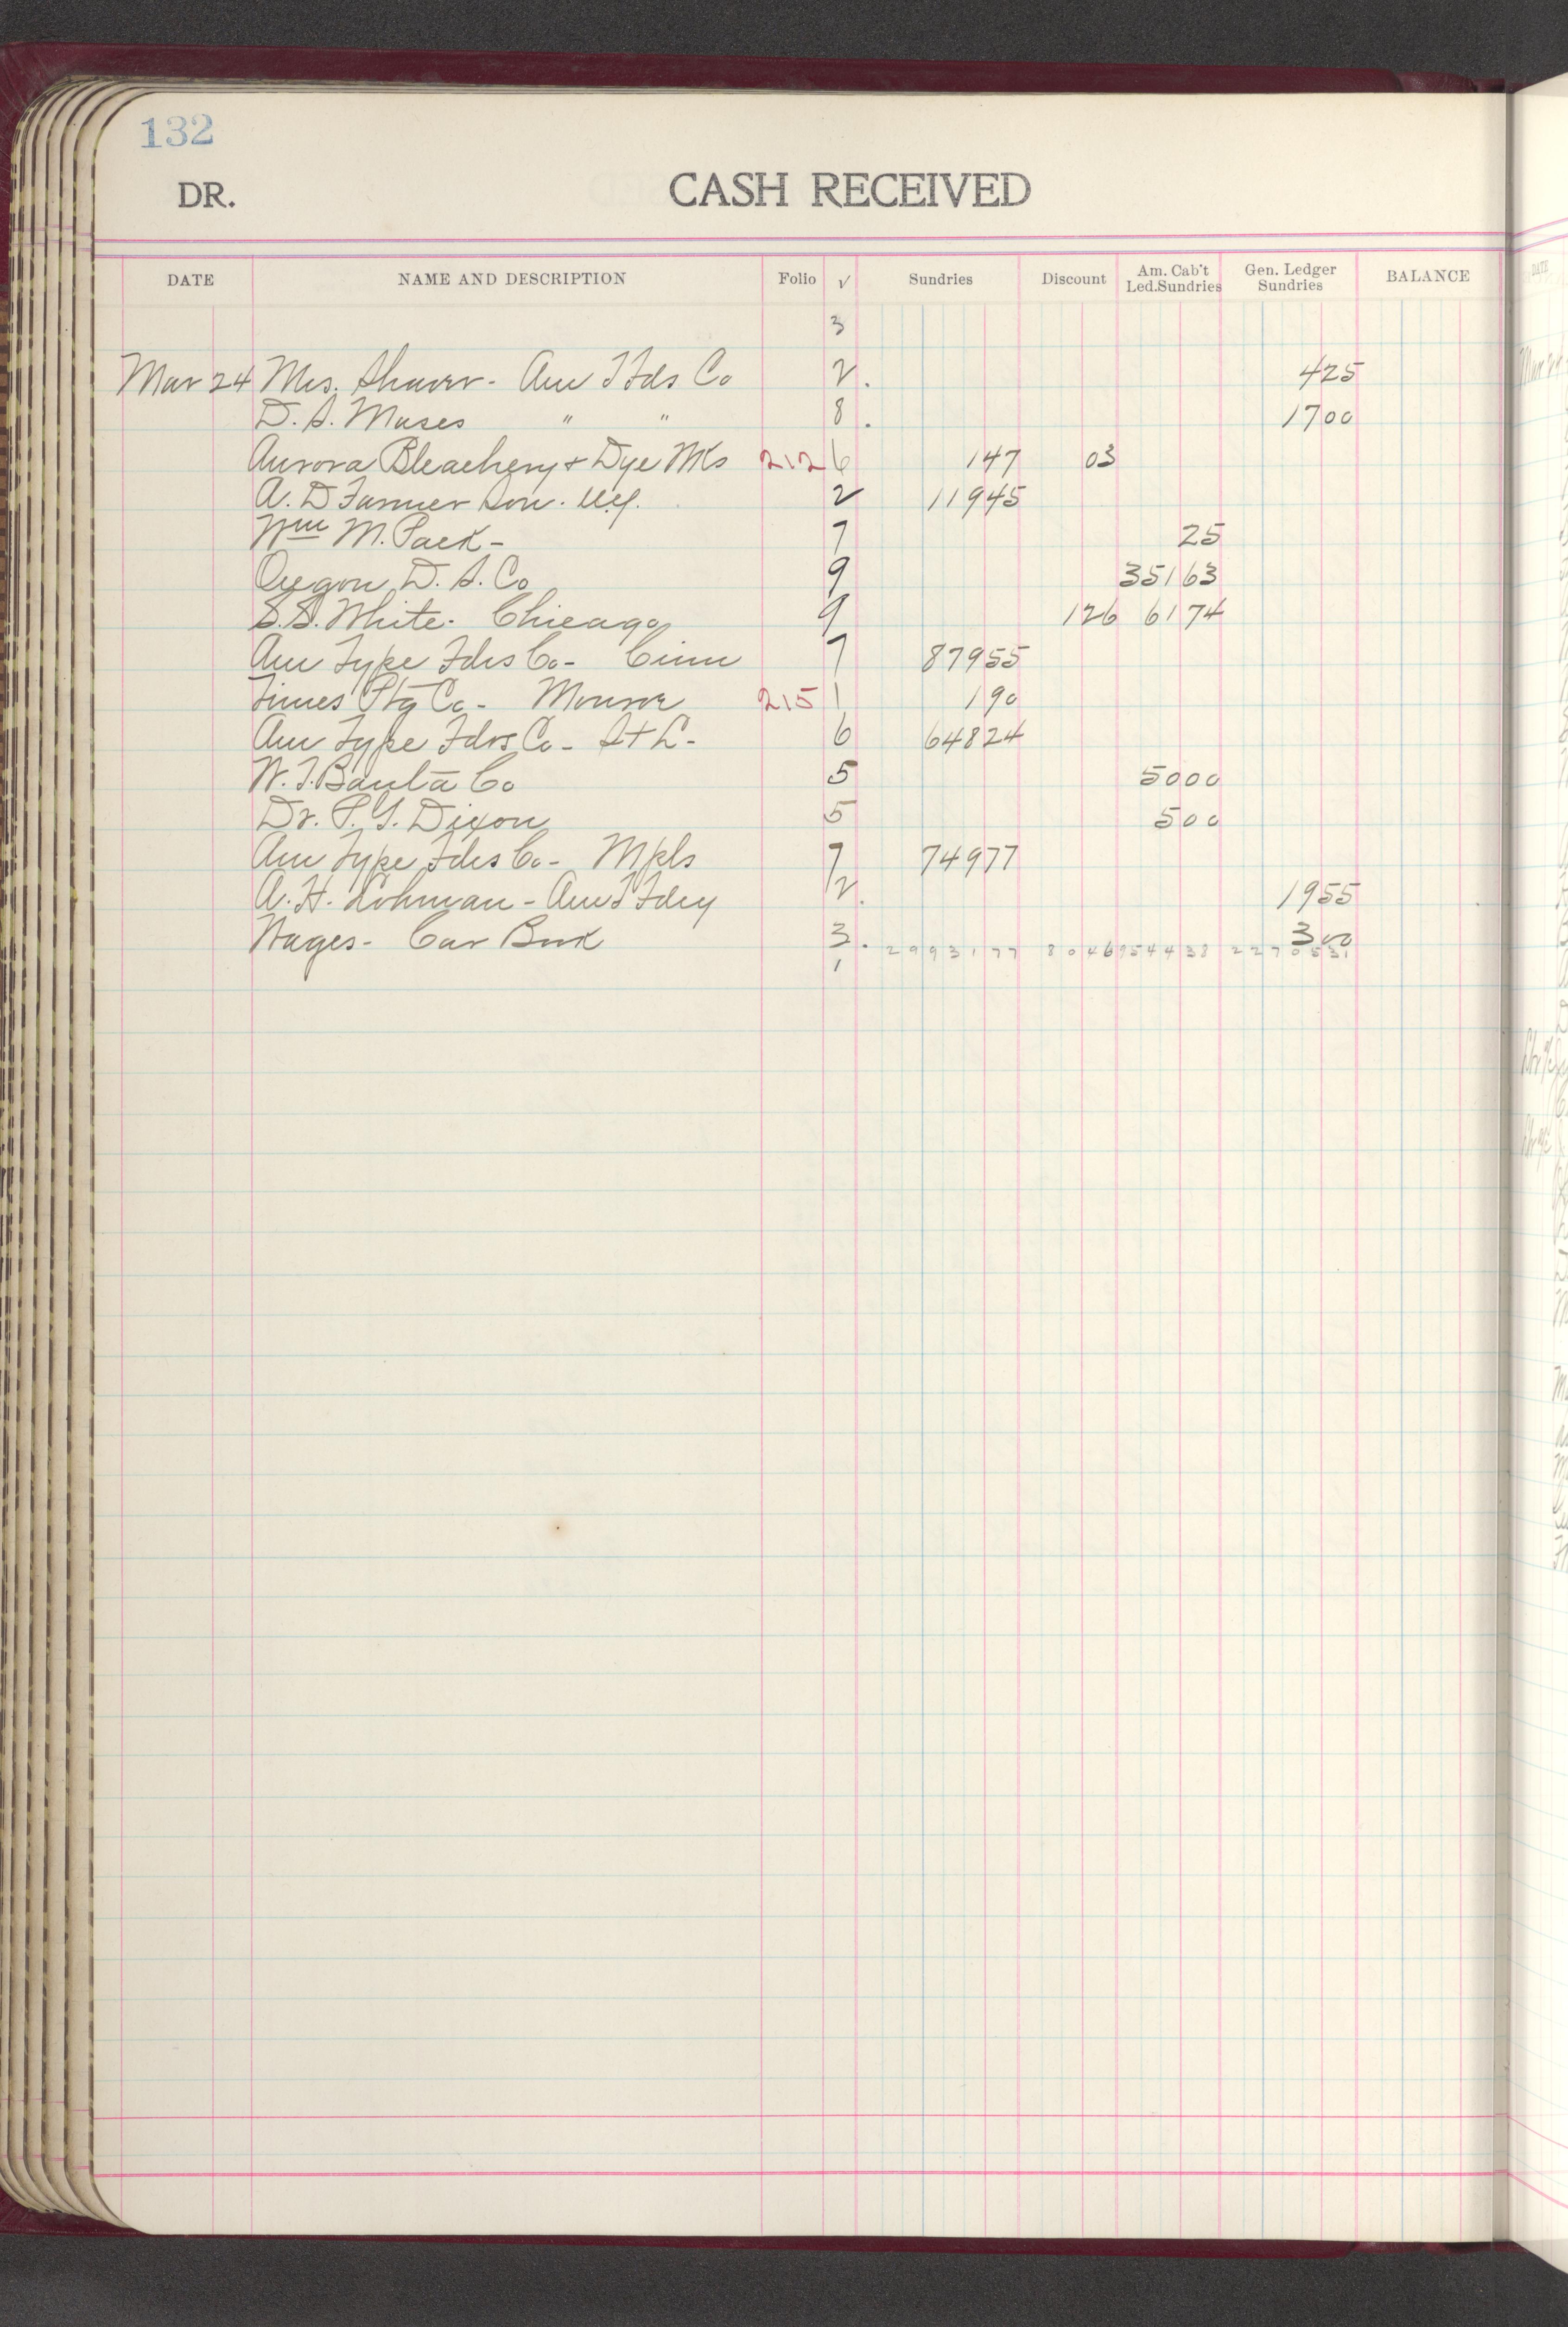 132
DR. CASH RECEIVED
DATE NAME AND DESCRIPTION Folio √ Sundries Discount Am. Cab't Led.Sundries Gen. Ledger Sundries BALANCE
3
Mar 24 Mrs. Shaver - Am T Fds Co 2. 425
D. S. Moses " " 8. 1700
Aurora Bleachery & Dye Wks 212 6 147 03
A. D Farmer Son. N.Y. 2 11945
Wm M. Pack - 7 25
Oregon D. S. Co 9 35163
S.S. White. Chicago 9 126 6174
Am Type Fdrs Co - Cinn 7 87955
Times Ptg Co - Monroe 215 1 190
Am Type Fdrs Co - St L - 6 64824
W. T. Banta Co 5 5000
Dr. P. G. Dixon 5 500
Am Type Fdrs Co - Mpls 7 74977
A. H. Lohman - Am T Fdry 2. 1955
Wages - Car Book 3. 300
2993177 8046 954438 2270531
1